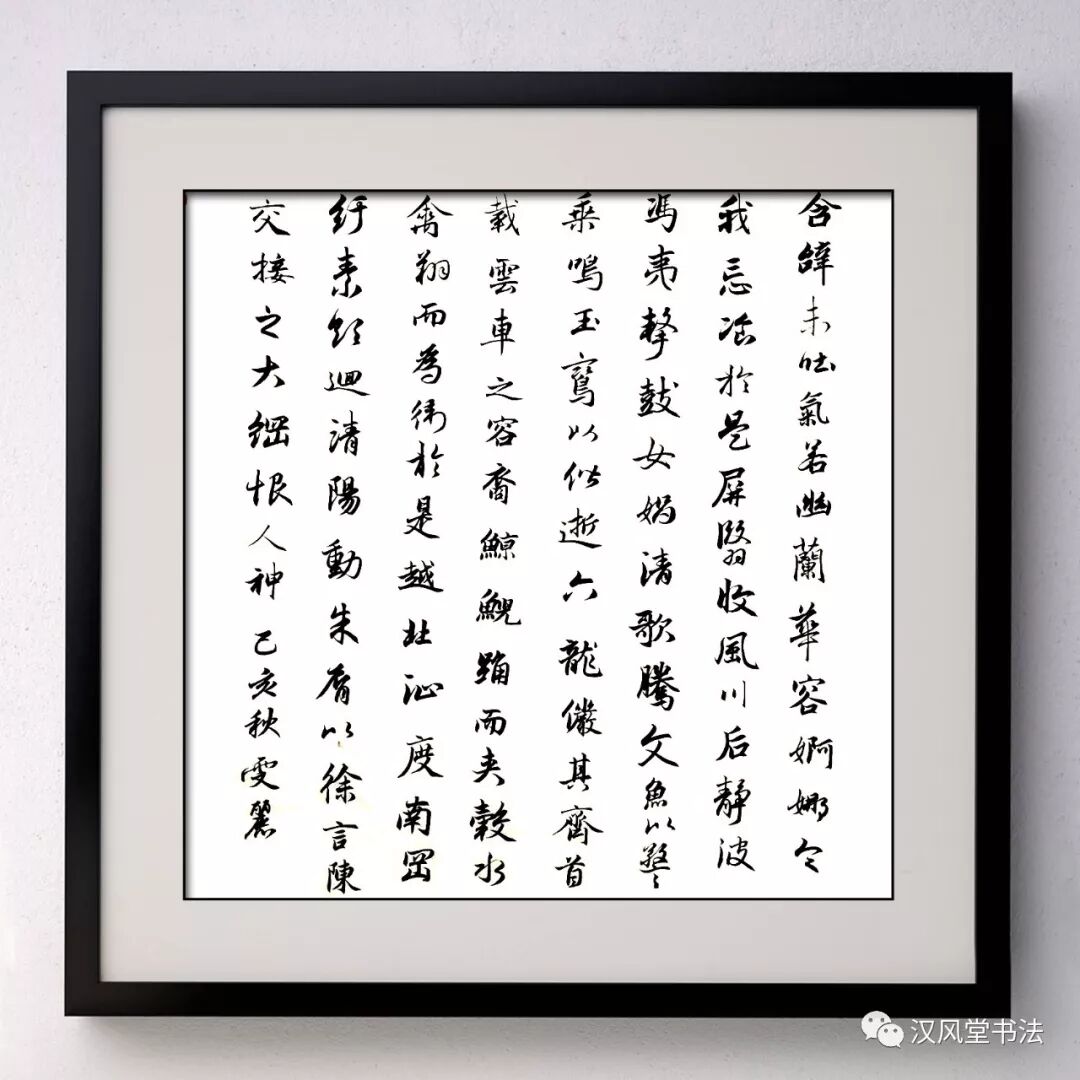 含辭未吐氣若幽蘭華容婀娜令
我忘湌於是屏翳收風川后靜波
馮夷擊鼓女媧清歌騰文魚以警
乘鳴玉鸞以偕逝六龍儼其齊首
載雲車之容裔鯨鯢踊而夾轂水
禽翔而為衛於是越北沚度南岡
紆素領迴清陽動朱脣以徐言陳
交接之大綱恨人神 己亥秋雯麗
汉风堂书法